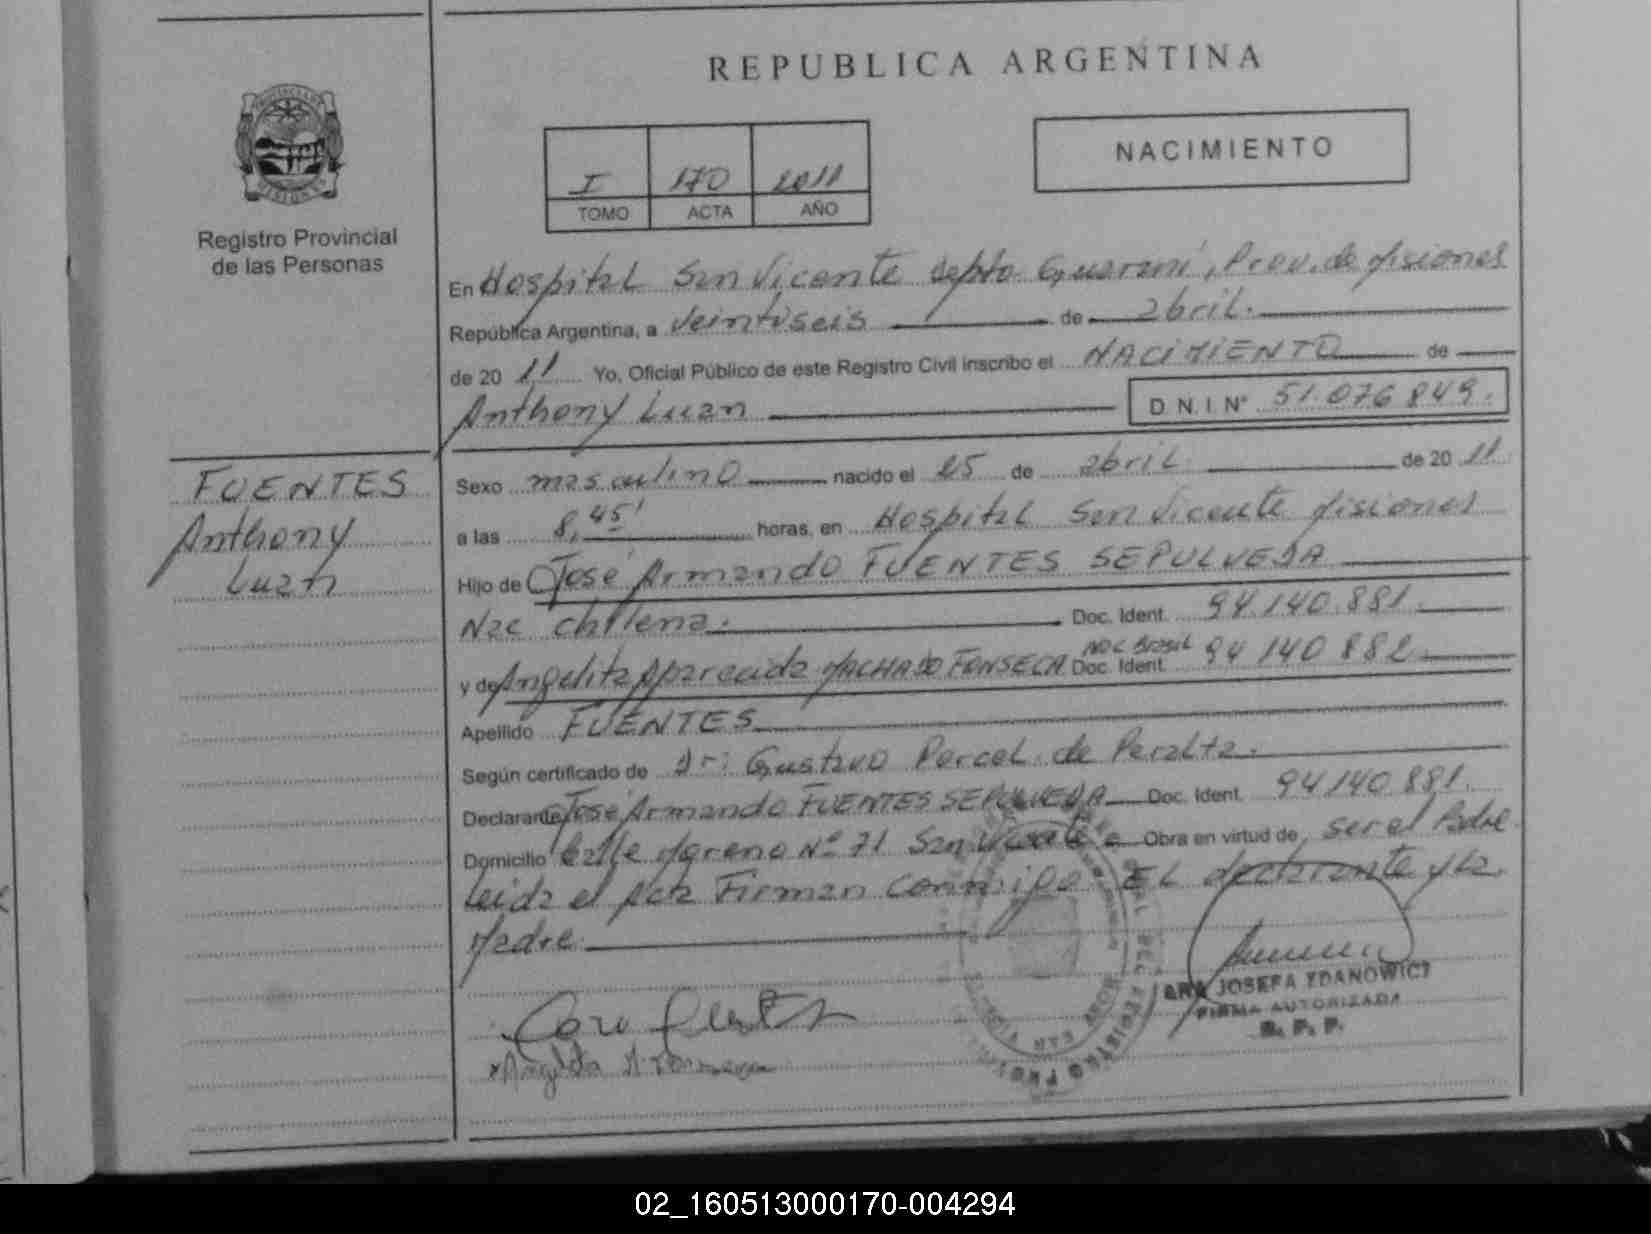 REPUBLICA ARGENTINA
NACIMIENTO
I 170 2011
TOMO ACTA AÑO
Registro Provincial
de las Personas
En Hospital San Vicente depto Guaraní, Prov. de Misiones
República Argentina, a veintiseis de abril.
de 20 11 Yo, Oficial Público de este Registro Civil inscribo el NACIMIENTO de
Anthony Luan D.N.I. N° 51.076.849.
FUENTES
Anthony
Luan
Sexo masculino nacido el 25 de abril de 20 11
a las 8,45' horas, en Hospital San Vicente Misiones
Hijo de José Armando FUENTES SEPULVEDA
Nac chilena. Doc. Ident. 94.140.881.
y de Angelita Aparecida MACHADO FONSECA Nac Brasil Doc. Ident. 94 140 882
Apellido FUENTES
Según certificado de Dr: Gustavo Porcel de Peralta.
Declarante José Armando FUENTES SEPULVEDA Doc. Ident. 94.140.881.
Domicilio Calle Moreno Nº 71 San Vicente Obra en virtud de ser el Padre
Leida el Acta Firman conmigo El declarante y la
Madre.
JOSEFA ZDANOWICZ
FIRMA AUTORIZADA
R. P. P.
02_160513000170-004294